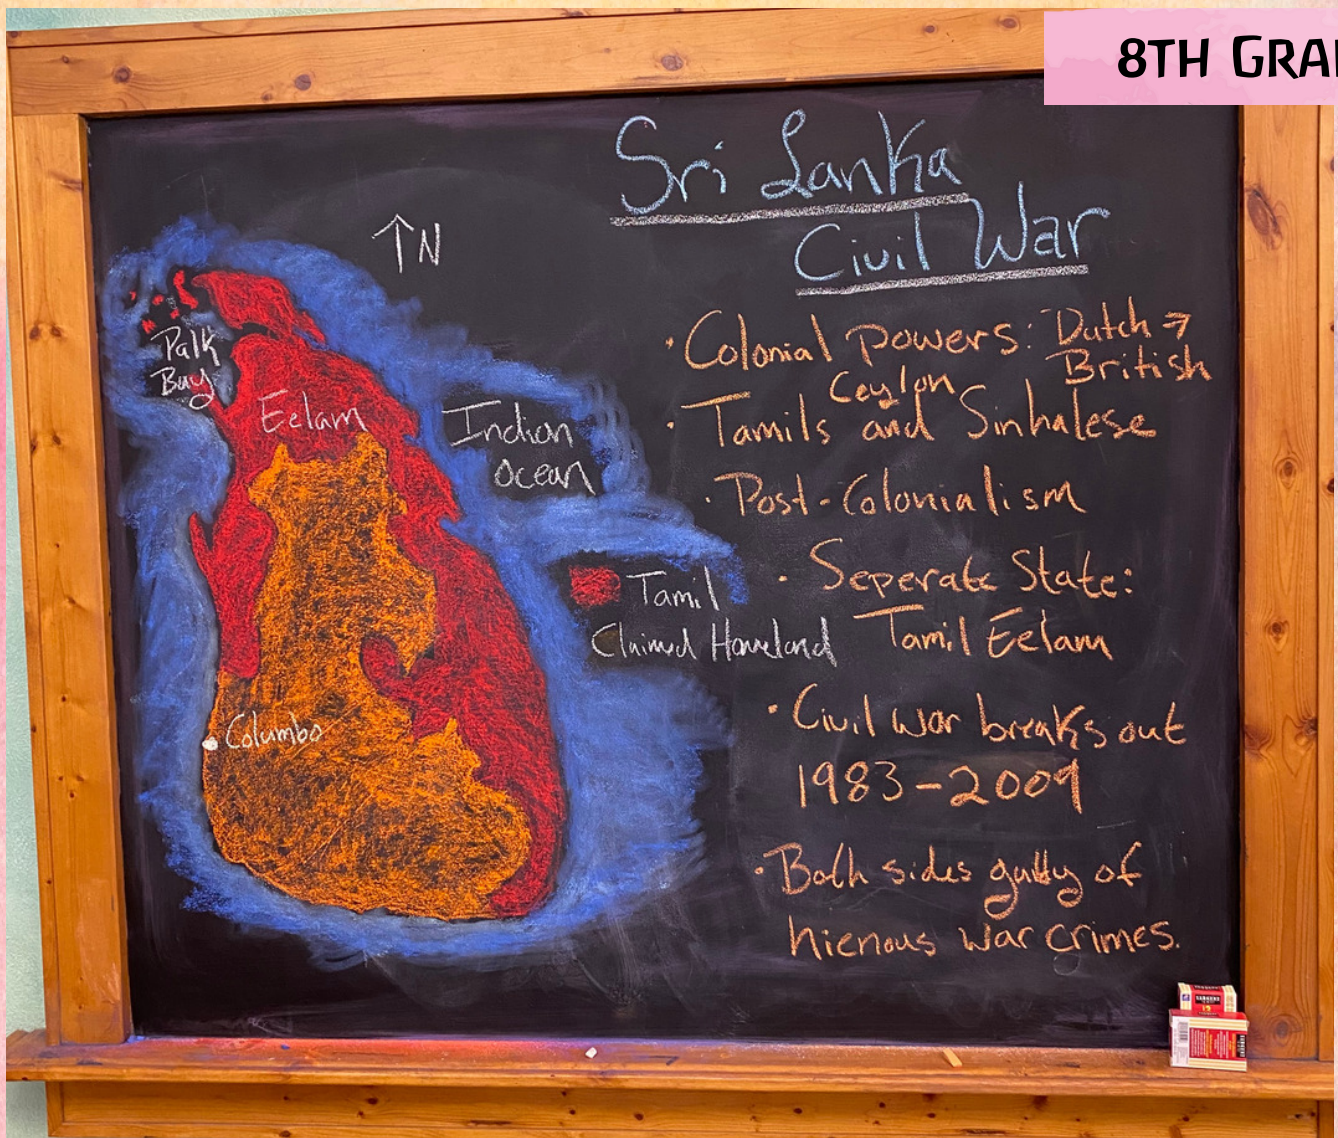 8TH GRA
Sri Lanka
Civil War
↑N
Palk
Bay
Eelam
Indian
Ocean
Tamil
Claimed Homeland
Columbo
· Colonial Powers: Dutch →
British
Ceylon
· Tamils and Sinhalese
· Post-Colonialism
· Seperate State:
Tamil Eelam
· Civil War breaks out
1983-2009
· Both sides guilty of
hienous war crimes.